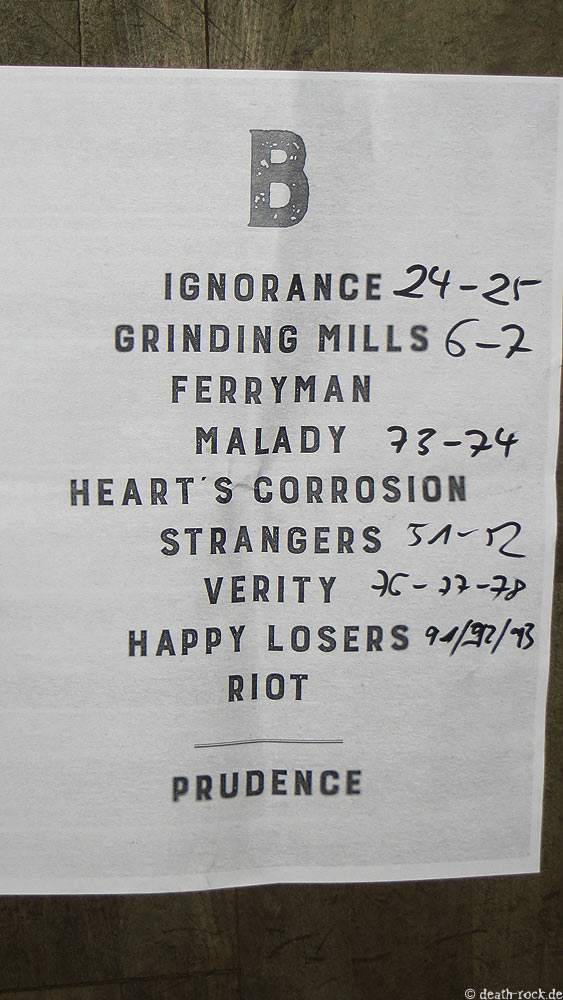 B
IGNORANCE 24-25
GRINDING MILLS 6-7
FERRYMAN
MALADY 73-74
HEART´S CORROSION
STRANGERS 51-52
VERITY 76-77-78
HAPPY LOSERS 91/92/93
RIOT
PRUDENCE
© death-rock.de